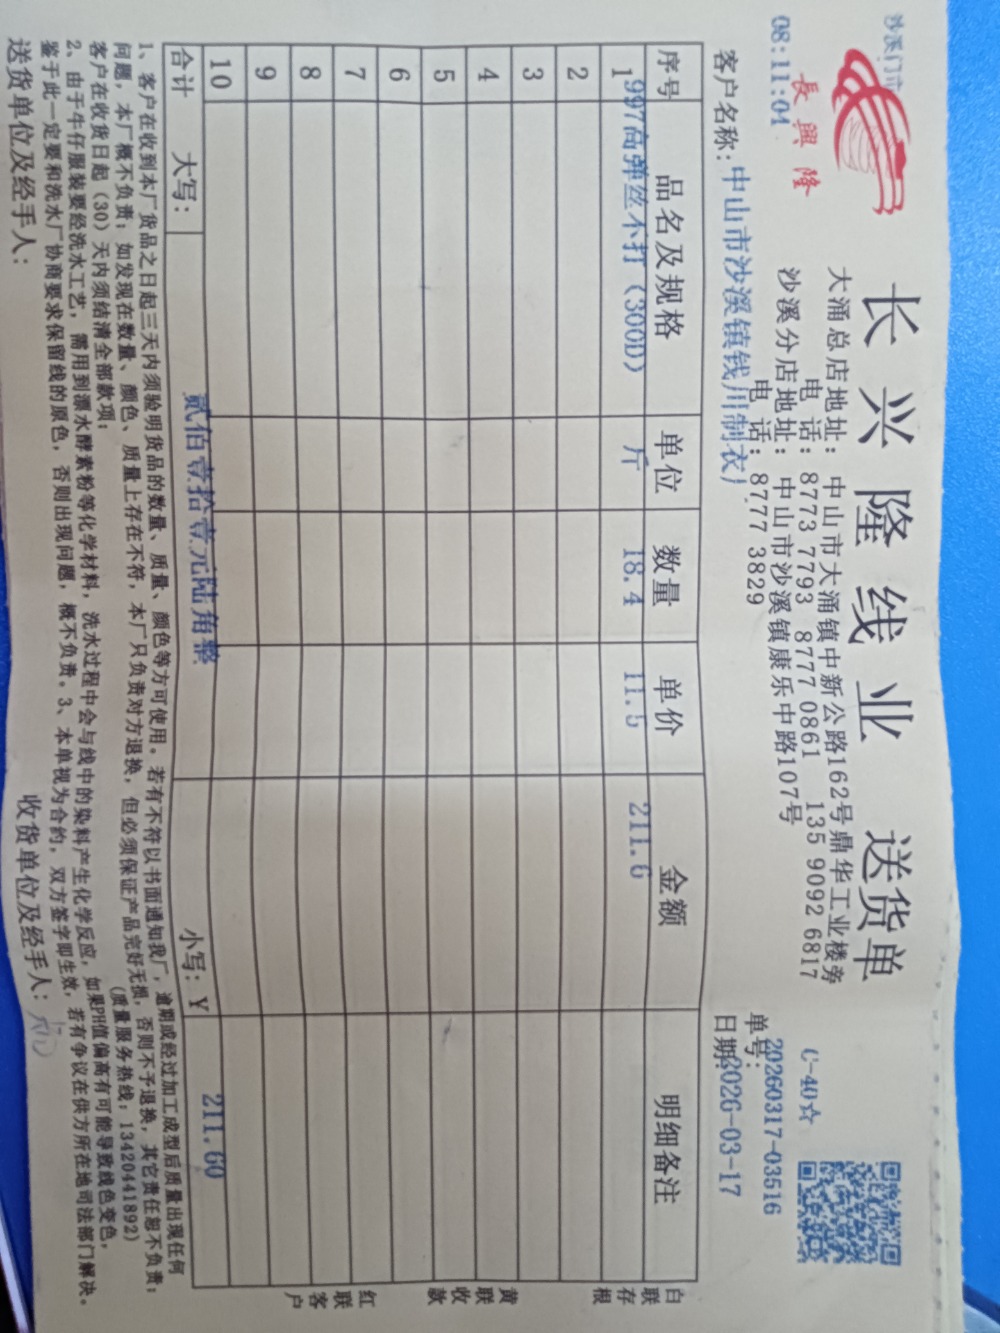 沙溪门市
長興隆
08:11:04
长兴隆线业 送货单
大涌总店地址：中山市大涌镇中新公路162号鼎华工业楼旁
电 话：8773 7793 8777 0861 135 9092 6817
沙溪分店地址：中山市沙溪镇康乐中路107号
电 话：8777 3829
C-40☆
单号：20260317-03516
客户名称：中山市沙溪镇钱川制衣厂
日期：2026-03-17
序号 品名及规格 单位 数量 单价 金额 明细备注
1 997高弹丝不打（300D） 斤 18.4 11.5 211.6
2
3
4
5
6
7
8
9
10
合计 大写： 贰佰壹拾壹元陆角整 小写：¥ 211.60
白联存根
黄联收款
红联客户
1、客户在收到本厂货品之日起三天内须验明货品的数量、质量、颜色等方可使用。若有不符以书面通知我厂，逾期或经过加工成型后质量出现任何
问题，本厂概不负责；如发现在数量、颜色、质量上存在不符，本厂只负责对方退换，但必须保证产品完好无损，否则不予退换，其它责任恕不负责；
客户在收货日起（30）天内须结清全部款项； （质量服务热线：13420441892）
2、由于牛仔服装要经洗水工艺，需用到漂水酵素粉等化学材料，洗水过程中会与线中的染料产生化学反应，如果PH值偏高有可能导致线色变色，
鉴于此一定要和洗水厂协商要求保留线的原色，否则出现问题，概不负责。3、本单视为合约，双方签字即生效，若有争议在供方所在地司法部门解决。
送货单位及经手人： 收货单位及经手人：